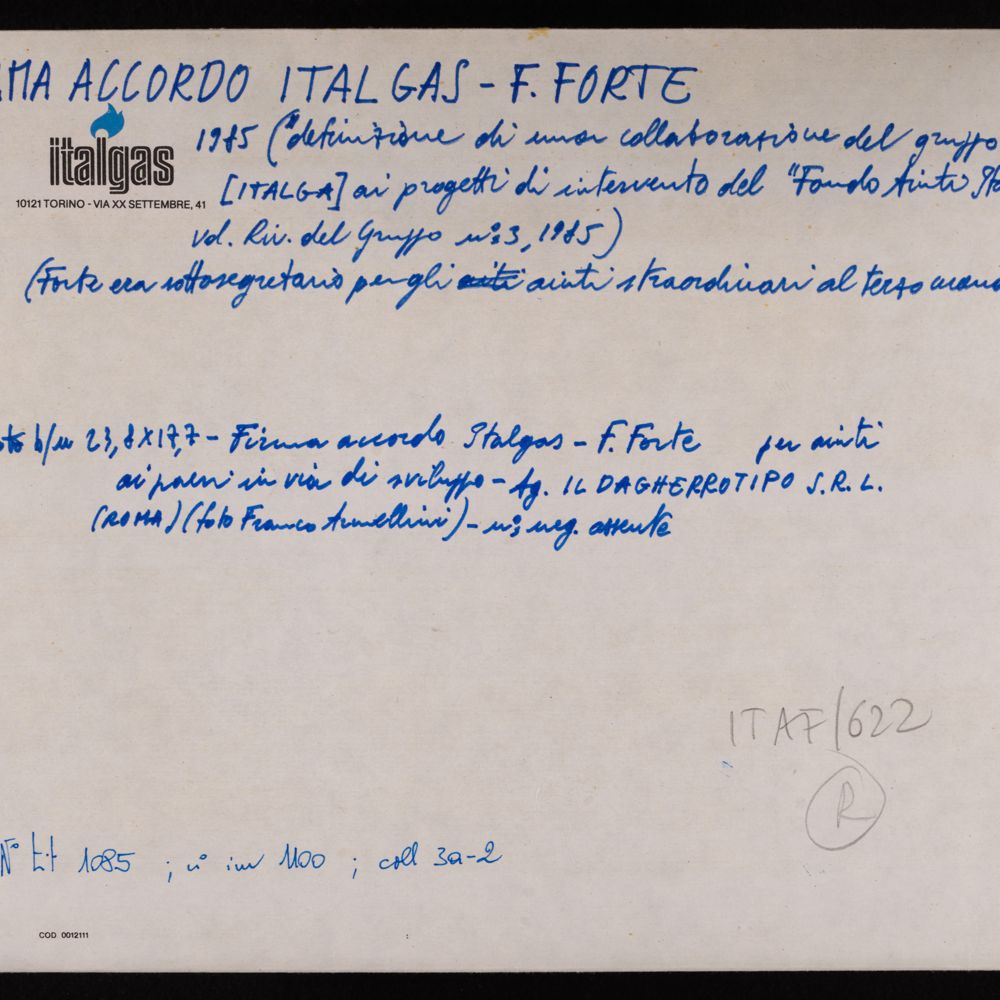 MA ACCORDO ITALGAS - F. FORTE
italgas
10121 TORINO - VIA XX SETTEMBRE, 41
1985 ("definizione di una collaborazione del gruppo
[ITALGA] ai progetti di intervento del "Fondo Aiuti
vd. Riv. del Gruppo n° 3, 1985)
(Forte era sottosegretario per gli aiuti aiuti straordinari al terzo
b/n 23,8X17,7 - Firma accordo Italgas - F. Forte per aiuti
ai paesi in via di sviluppo - Ag. IL DAGHERROTIPO S.R.L.
(ROMA) (foto Franco Armellini) - n° neg. assente
ITAF/622
R
N° t.t 1085 ; n° inv 1100 ; coll 3a-2
COD 0012111